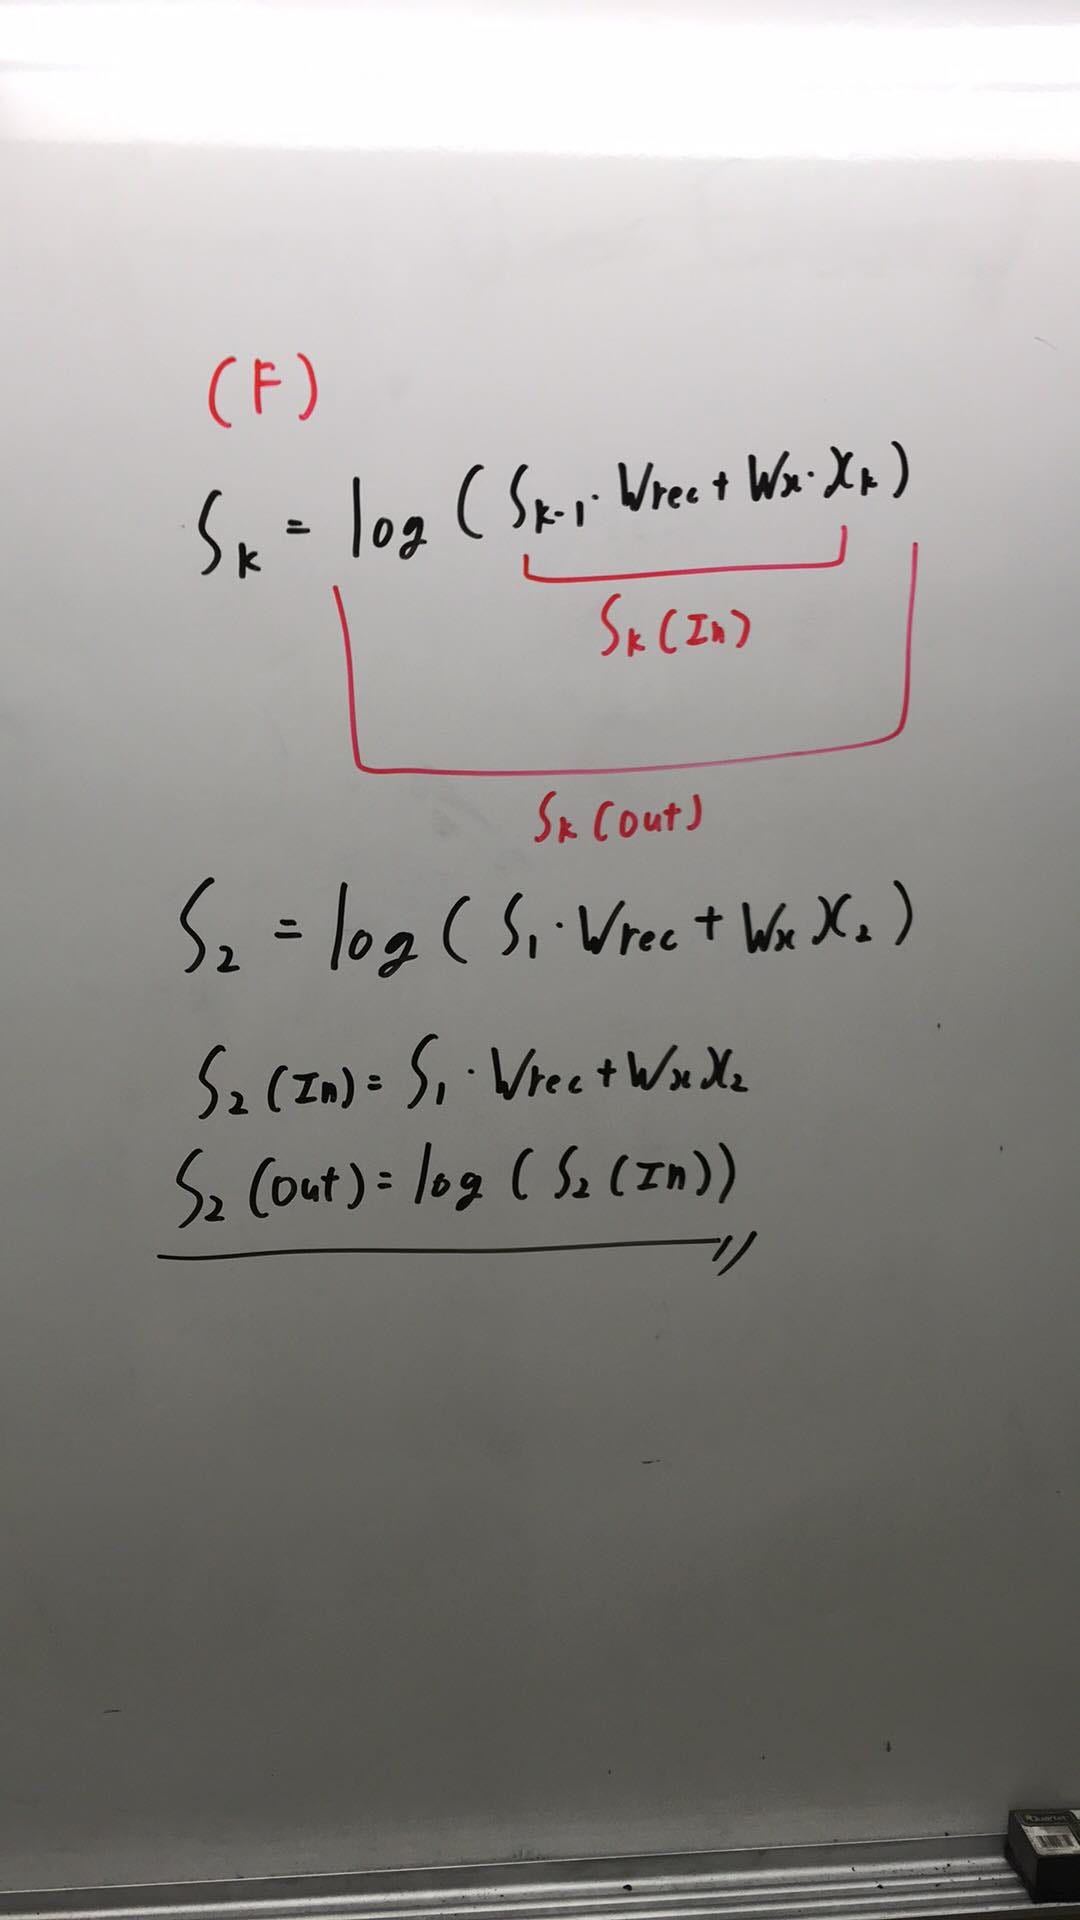 (F)
Sk = log (Sk-1· Wrec + Wx· Xk)
Sk (In)
Sk (out)
S2 = log ( S1· Wrec + Wx X2 )
S2 (In) = S1 · Wrec + Wx X2
S2 (out) = log ( S2 (In))
Quartet